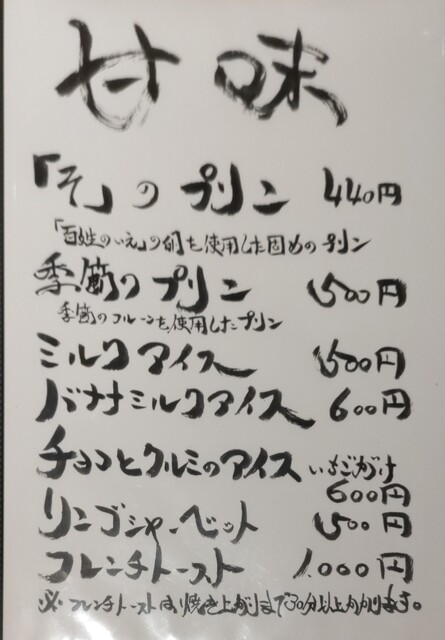 甘味
「そ」のプリン 440円
「百姓のいえ」の卵を使用した固めのプリン
季節のプリン 500円
季節のフルーツを使用したプリン
ミルクアイス 500円
バナナミルクアイス 600円
チョコとクルミのアイス いちごがけ
600円
リンゴシャーベット 500円
フレンチトースト 1000円
※フレンチトーストは、焼き上がりまで30分以上かかります。